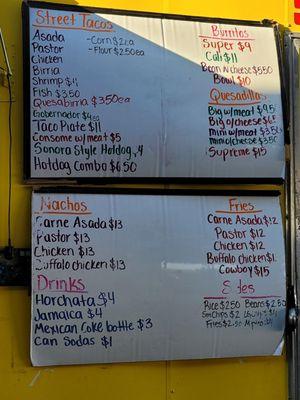 Street Tacos
Asada -Corn $2ea
Pastor -Flour $2.50ea
Chicken
Birria
Shrimp $4
Fish $3.50
Quesabirria $3.50ea
Gobernador $4ea
Taco Plate $11
Consome w/meat $5
Sonora Style Hotdog
Hotdog Combo $6.50
Burritos
Super $9
Cali $11
Bean N cheese $5.50
Bowl $10
Quesadilla
Big w/meat $9.5
Big o/cheese
Mini w/meat $3.50
mini o/cheese
Supreme $15
Nachos
Carne Asada $13
Pastor $13
Chicken $13
Buffalo chicken $13
Drinks
Horchata $4
Jamaica $4
Mexican Coke bottle $3
Can Sodas $1
Fries
Carne Asada $12
Pastor $12
Chicken $12
Buffalo Chicken
Cowboy $15
Rice $2.50 Beans $2.50
Chips $2
Fries